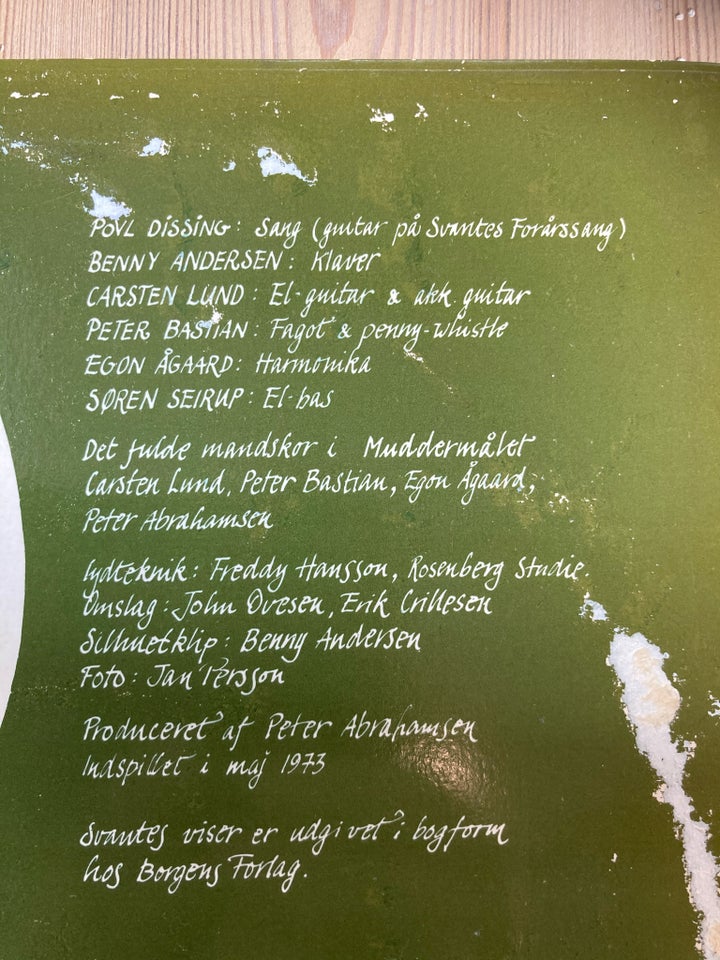 POVL DISSING: Sang (guitar på Svantes Forårssang)
BENNY ANDERSEN: Klaver
CARSTEN LUND: El-guitar & akk. guitar
PETER BASTIAN: Fagot & penny-whistle
EGON ÅGAARD: Harmonika
SØREN SEIRUP: El-bas
Det fulde mandskor i Muddermålet
Carsten Lund, Peter Bastian, Egon Ågaard,
Peter Abrahamsen
Lydteknik: Freddy Hansson, Rosenberg Studie
Omslag: John Ovesen, Erik Crillesen
Silhuetklip: Benny Andersen
Foto: Jan Persson
Produceret af Peter Abrahamsen
Indspillet i maj 1973
Svantes viser er udgivet i bogform
hos Borgens Forlag.